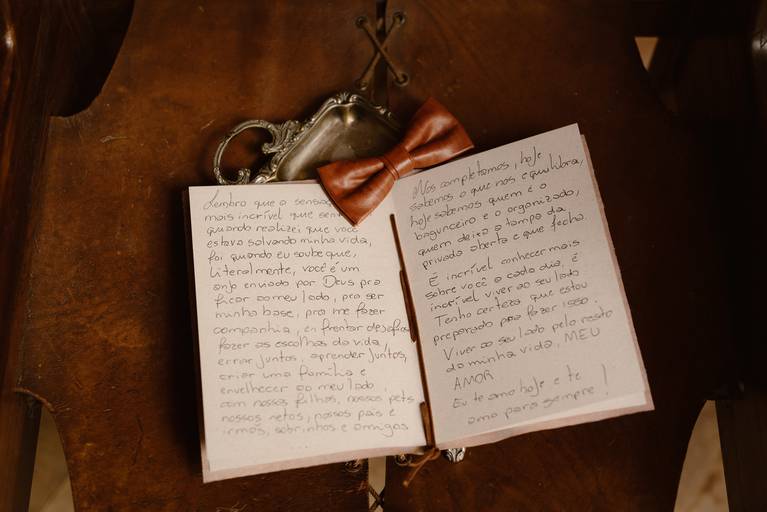 Lembro que a sensaç
mais incrível que sen
quando realizei que você
estava salvando minha vida,
foi quando eu soube que,
Literalmente, você é um
anjo enviado por Deus pra
ficar ao meu lado, pra ser
minha base, pra me fazer
companhia, enfrentar desafios
fazer as escolhas da vida,
errar juntos, aprender juntos,
criar uma família e
envelhecer ao meu lado
com nossos filhos, nossos pets
nossos netos, nossos pais e
irmãos, sobrinhos e amigos
Nos completamos, hoje
sabemos o que nos equilibra,
hoje sabemos quem é o
bagunceiro e o organizado,
quem deixa a tampa da
privada aberta e que fecha.
É incrível conhecer mais
sobre você a cada dia, é
incrível viver ao seu lado
Tenho certeza que estou
preparado para fazer isso.
Viver ao seu lado pelo resto
da minha vida, MEU
AMOR
Eu te amo hoje e te
amo para sempre!